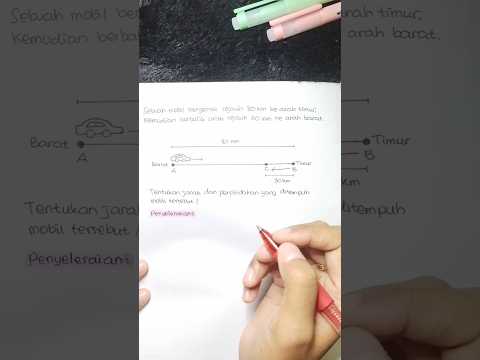 Sebuah mobil be
arah timur,
Kemudian berba
arah barat.
Sebuah mobil bergerak sejauh 80 km ke arah timur,
Kemudian berbalik arah sejauh 30 km ke arah barat.
80 km
Barat
A
C
B
Timur
30 km
Tentukan jarak dan perpindahan yang ditempuh
mobil tersebut!
Penyelesaian:
Barat
A
Timur
B
Tentukan jara
ditempuh
mobil tersebut!
Penyelesaian: